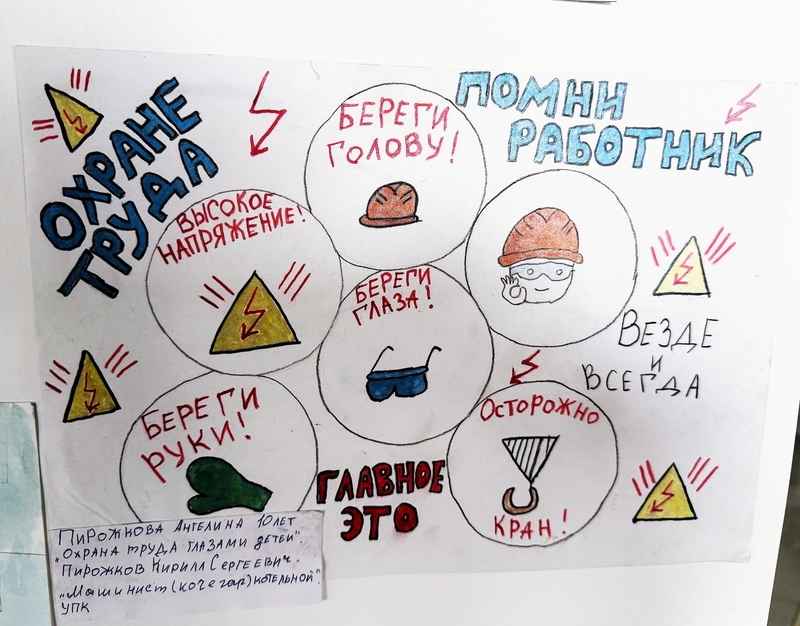 ОХРАНЕ
ТРУДА
ПОМНИ
РАБОТНИК
БЕРЕГИ
ГОЛОВУ!
ВЫСОКОЕ
НАПРЯЖЕНИЕ!
БЕРЕГИ
ГЛАЗА!
ВЕЗДЕ
И
ВСЕГДА
БЕРЕГИ
РУКИ!
ОСТОРОЖНО
КРАН!
ГЛАВНОЕ
ЭТО
ПИРОЖКОВА АНГЕЛИНА 10ЛЕТ
"ОХРАНА ТРУДА ГЛАЗАМИ ДЕТЕЙ".
ПИРОЖКОВ КИРИЛЛ СЕРГЕЕВИЧ.
"Машинист(кочегар)котельной".
УПК